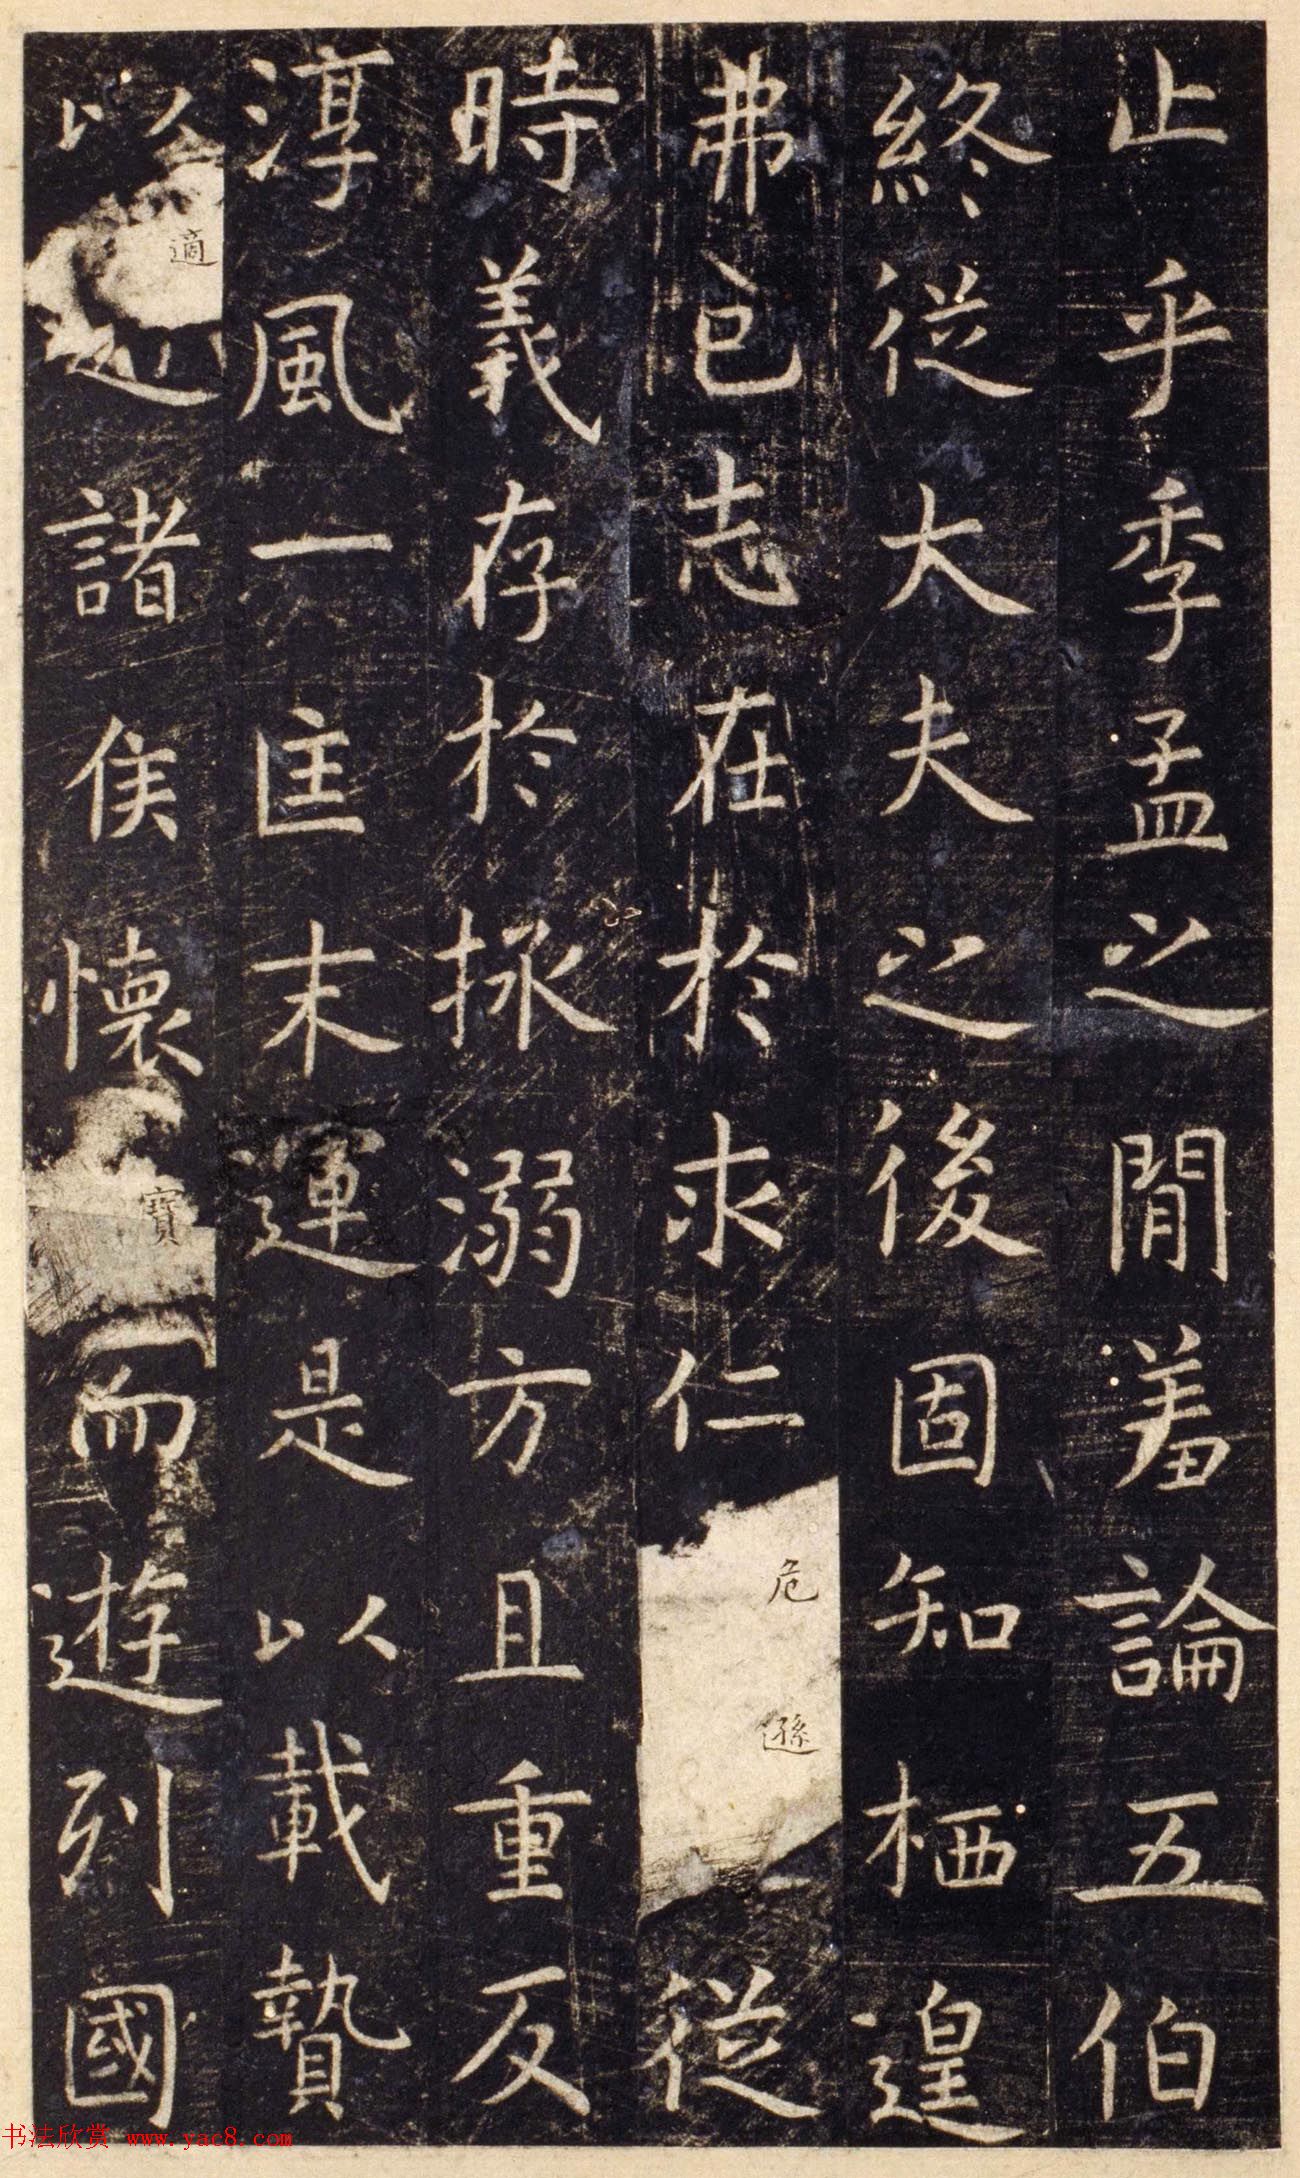 止乎季孟之閒羞論五伯
終從大夫之後固知栖遑
弗已志在於求仁危遜從
時義存於拯溺方且重反
淳風一匡末運是以載贄
以適諸侯懷寶而遊列國
书法欣赏 www.yac8.com